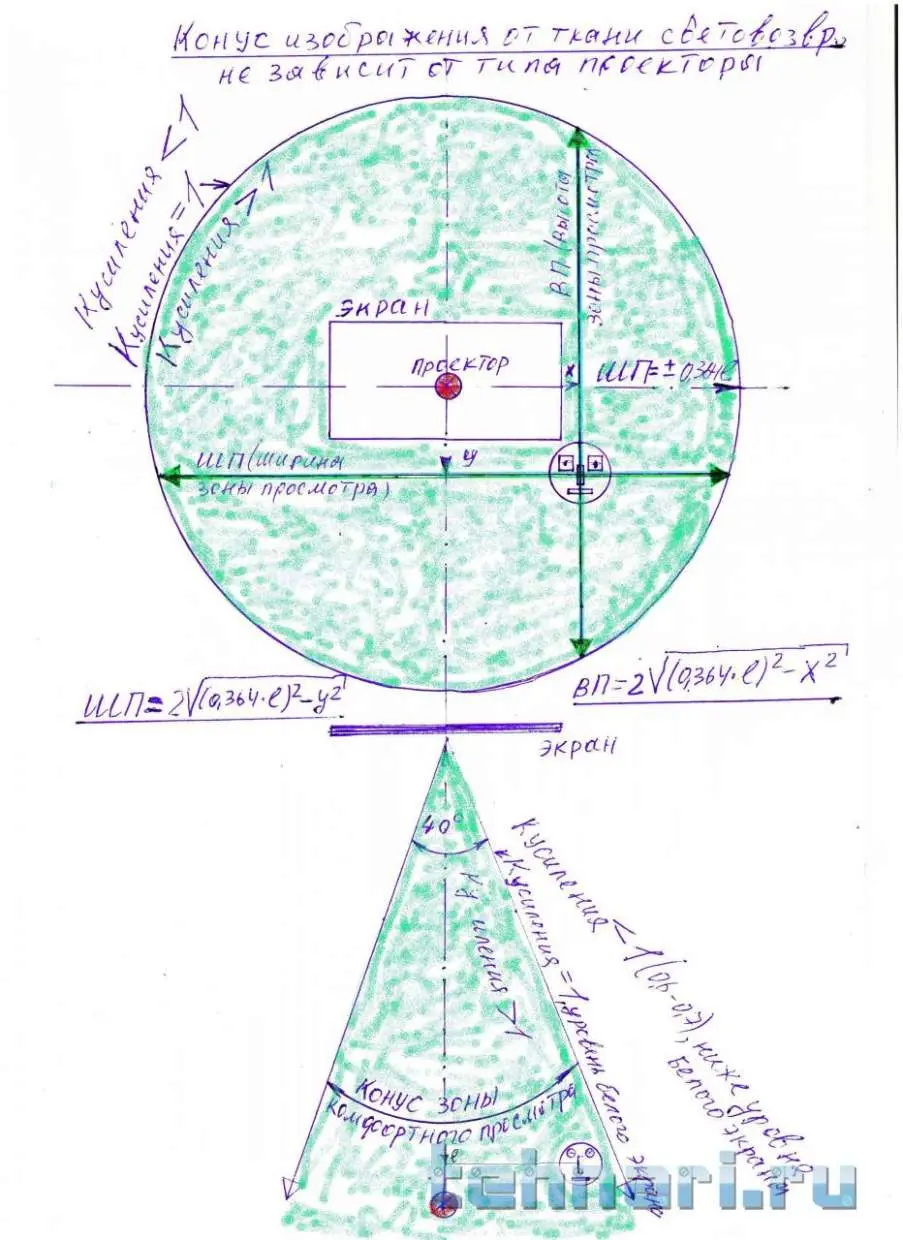 Конус изображения от ткани световозвр.
не зависит от типа проектора
Кусиления < 1
Кусиления = 1
Кусиления > 1
ВП (высота
зоны просмотра)
экран
проектор
x
ШП=± 0,364ℓ
ШП (ширина
зоны просмотра)
y
ШП=2√(0,364·ℓ)²-y²
ВП=2√(0,364·ℓ)²-x²
экран
40°
иления > 1
Кусиления = 1, уровень белого экрана
Кусиления < 1 (0,6-0,7), ниже уровня
белого экрана
Конус зоны
комфортного просмотра
ℓ
tehnari.ru